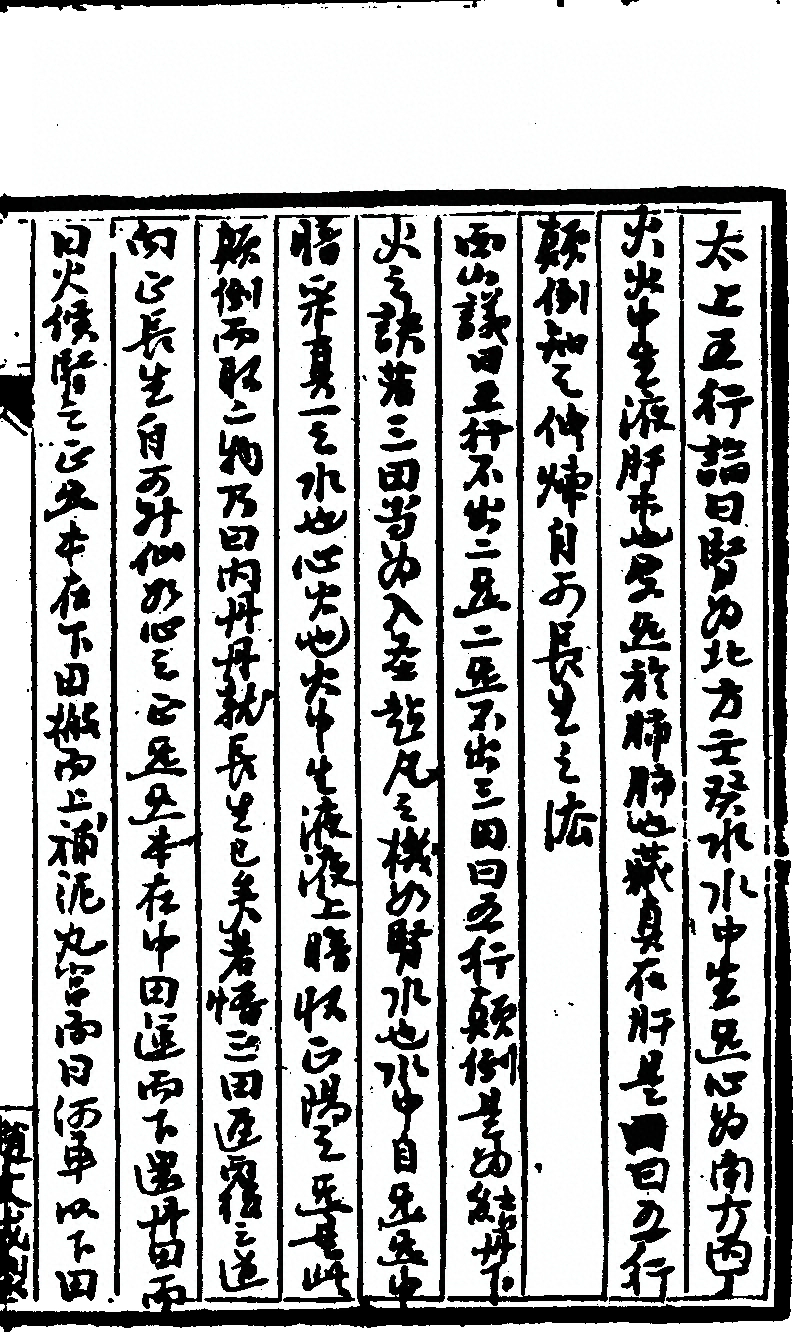 太上五行論曰腎為北方壬癸水水中生炁心為南方丙丁
火火中生液肝木也受炁於肺肺也藏真在肝是曰五行
顛倒知之修煉自可長生之法
西山議曰五行不出二炁二炁不出三田曰五行顛倒是為結丹下
火之訣落三田当為入圣起凡之機如腎水也水中自炁炁中
暗采真一之水也心火也火中生液液上暗收正陽之炁是此
顛倒而取二物乃曰内丹丹就長生已矣若憣三田返覆之道
而正長生自可升仙如心之正炁炁本在中田運而下還丹田而
曰火候腎之正炁本在下田搬而上補泥丸宮而曰河車以下田